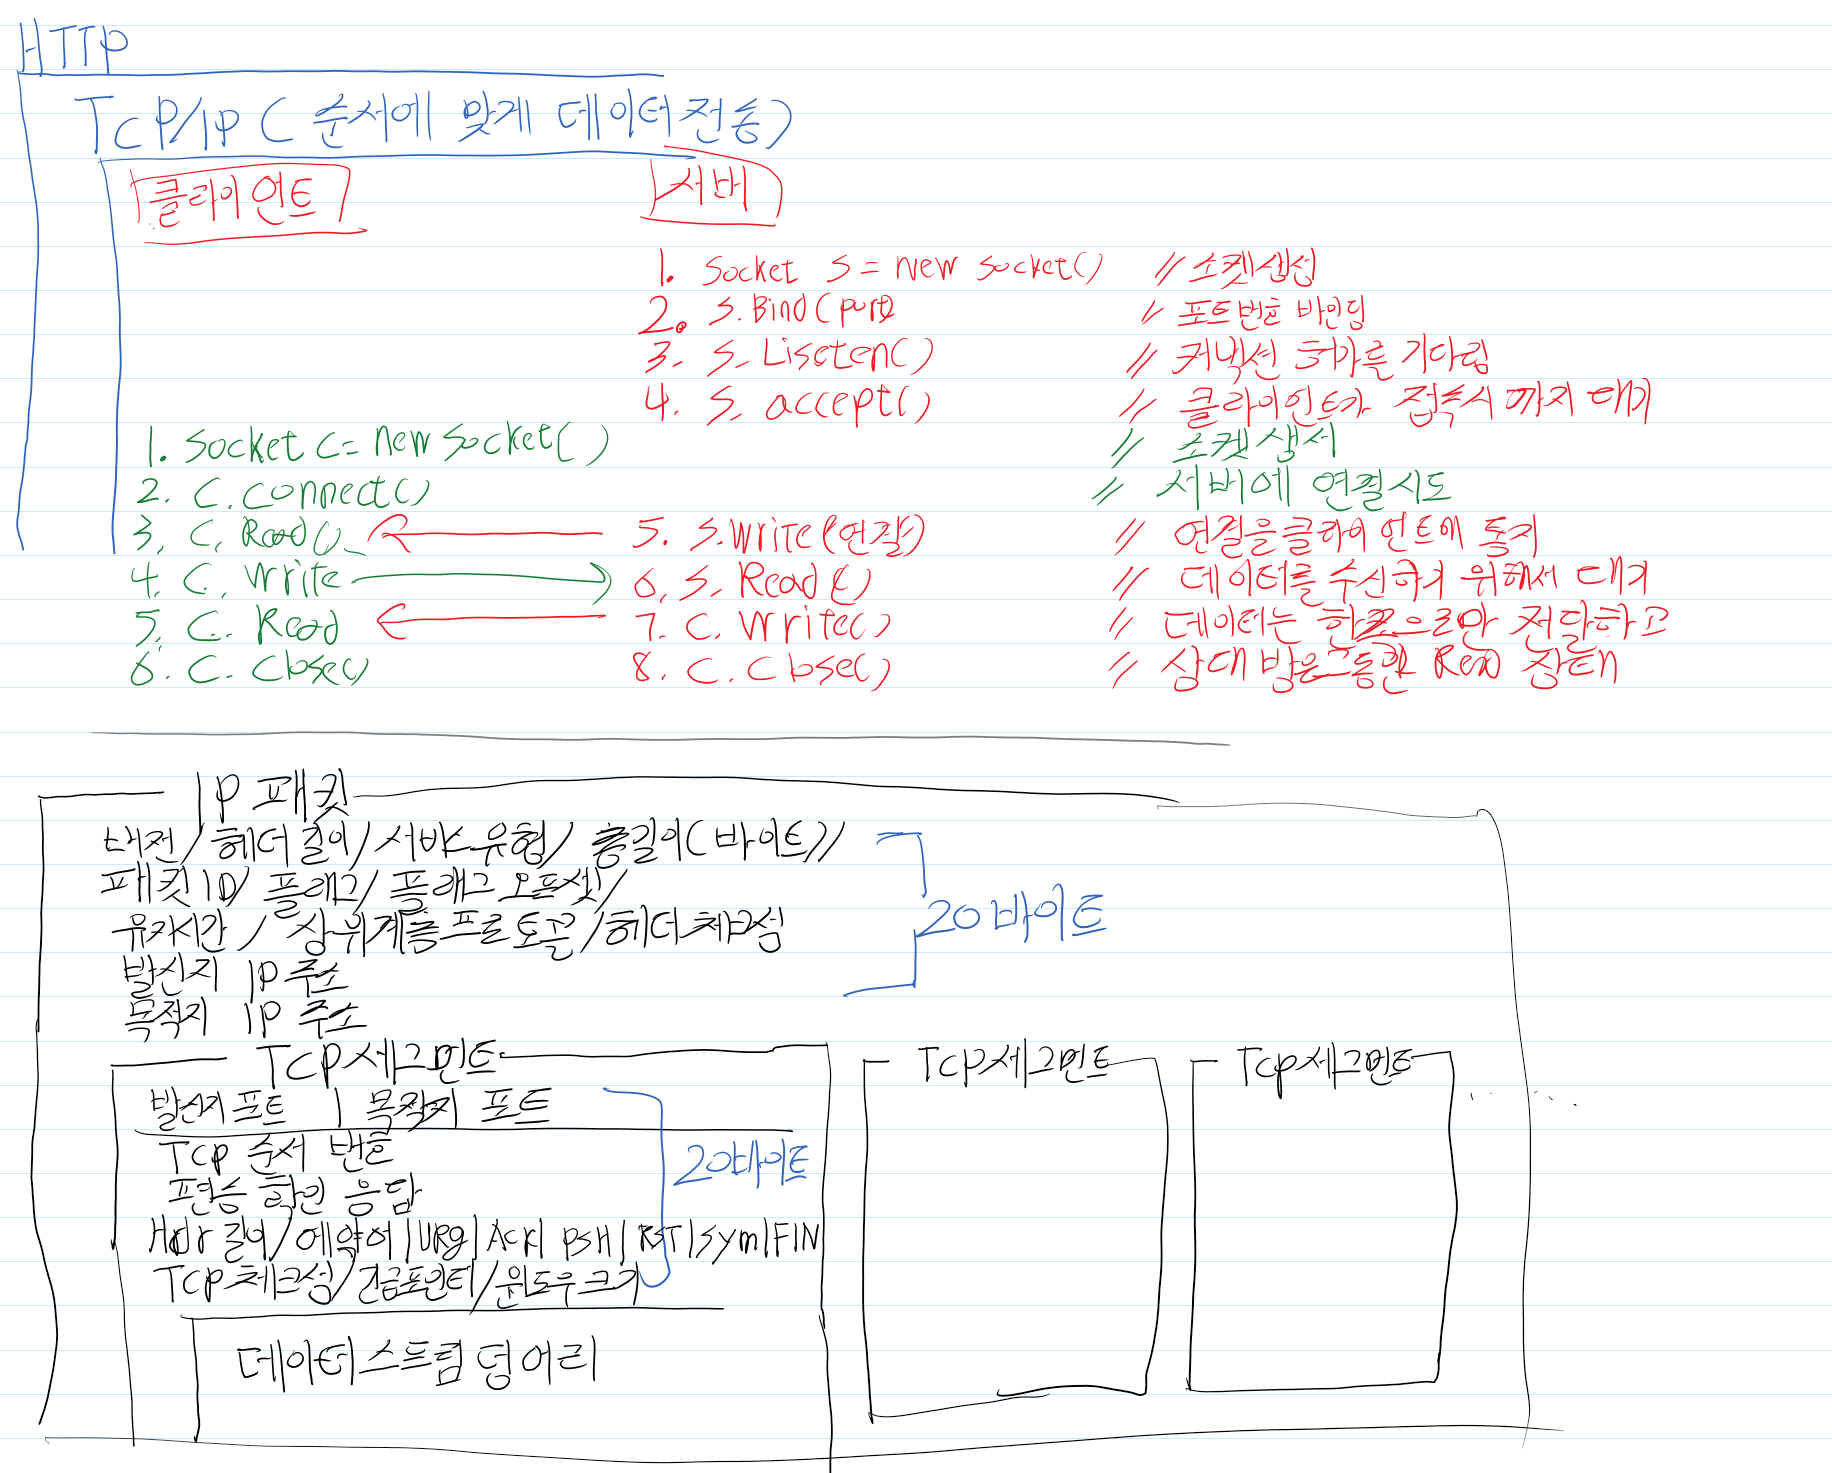 HTTP
TCP/IP ( 순서에 맞게 데이터 전송)
클라이언트 서버
1. Socket S = new socket() // 소켓생성
2. S.Bind(port) // 포트번호 바인딩
3. S. Liseten() // 커넥션 허가를 기다림
4. S. accept() // 클라이언트가 접속시 까지 대기
1. Socket C = new socket() // 소켓 생서
2. C. connect() // 서버에 연결시도
3. C. Read() 5. S.write(연결) // 연결을 클라이언트에 통지
4. C. write 6. S. Read() // 데이터를 수신하기 위해서 대기
5. C. Read 7. C. write() // 데이터는 한쪽으로만 전달하고
6. C. Close() 8. C. Close() // 상대방은 그동안 Read 상태
IP 패킷
버전/헤더길이/서비스유형/총길이(바이트)/
패킷ID/플래그/플래그 오프셋/
유지시간/상위계층프로토콜/헤더체크섬
발신지 IP 주소
목적지 IP 주소
20바이트
TCP세그먼트
발신지 포트 | 목적지 포트
TCP 순서 번호
편승 확인 응답
Hdr 길이/예약어|URg|Ack|PSH|RST|Sym|FIN
TCP체크섬/긴급포인터/윈도우크기
20바이트
데이터스트림 덩어리
TCP세그먼트
TCP세그먼트